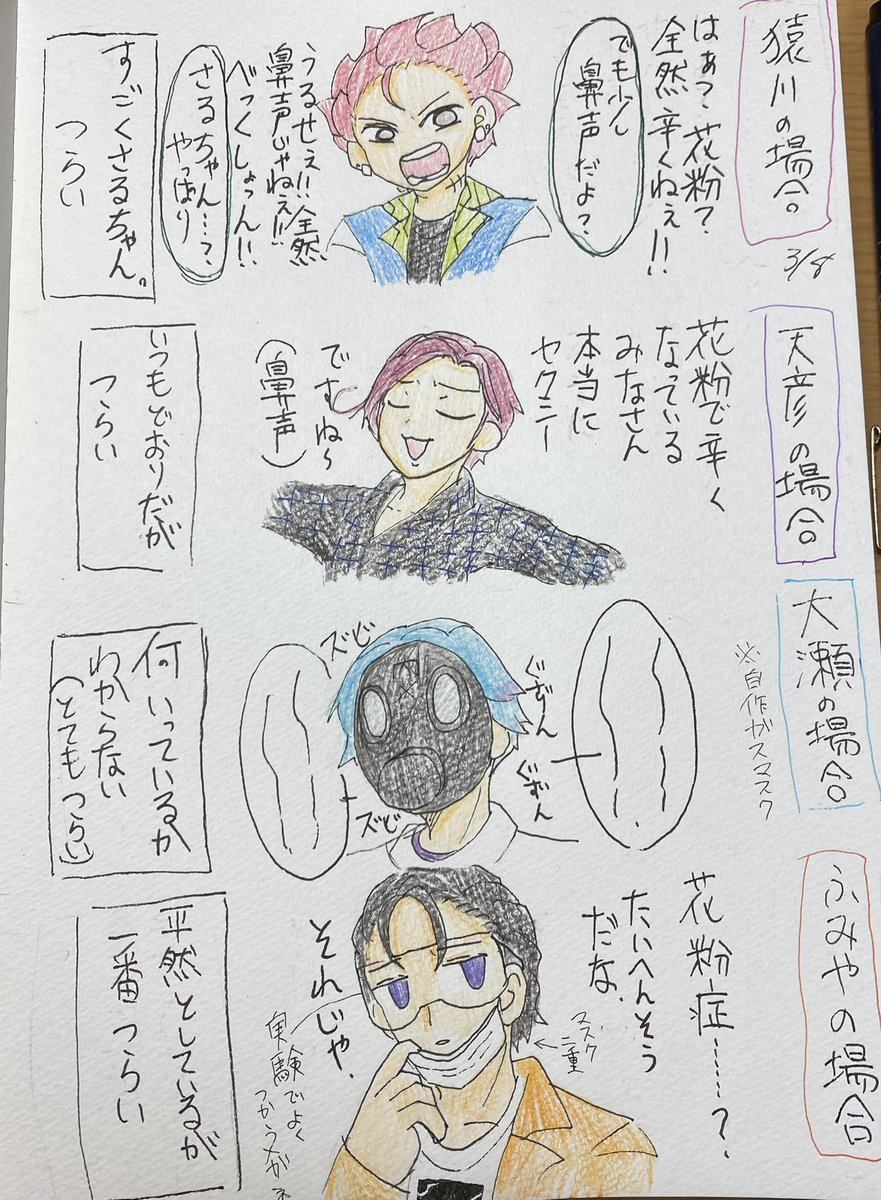 猿川の場合。
3/8
はぁ?花粉?
全然辛くねぇ!!
でも少し
鼻声だよ?
うるせぇ!!全然
鼻声じゃねぇ!!
べっくしょっん!!
さるちゃん…?
やっぱり
すごくさるちゃん。
つらい
天彦の場合
花粉で辛く
なっている
みなさん
本当に
セクシー
ですね~
(鼻声)
いつもどおりだが
つらい
大瀬の場合
※自作ガスマスク
ぐずん
ぐずん
ズビ
ズビ
何いっているか
わからない
(とてもつらい)
ふみやの場合
花粉症……?
たいへんそう
だな。
マスク
二重
それじゃ.
実験でよく
つかうメガネ
平然としているが
一番つらい